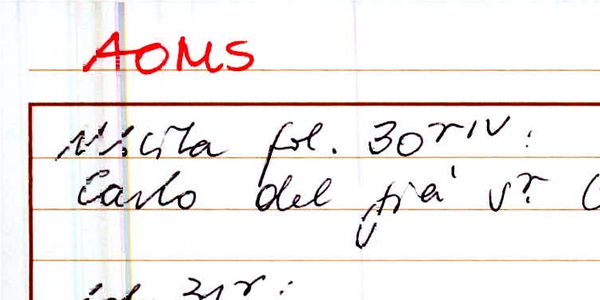 AOMS
Uscita fol. 30r/v:
Carlo del fià v? (
fol. 31r: